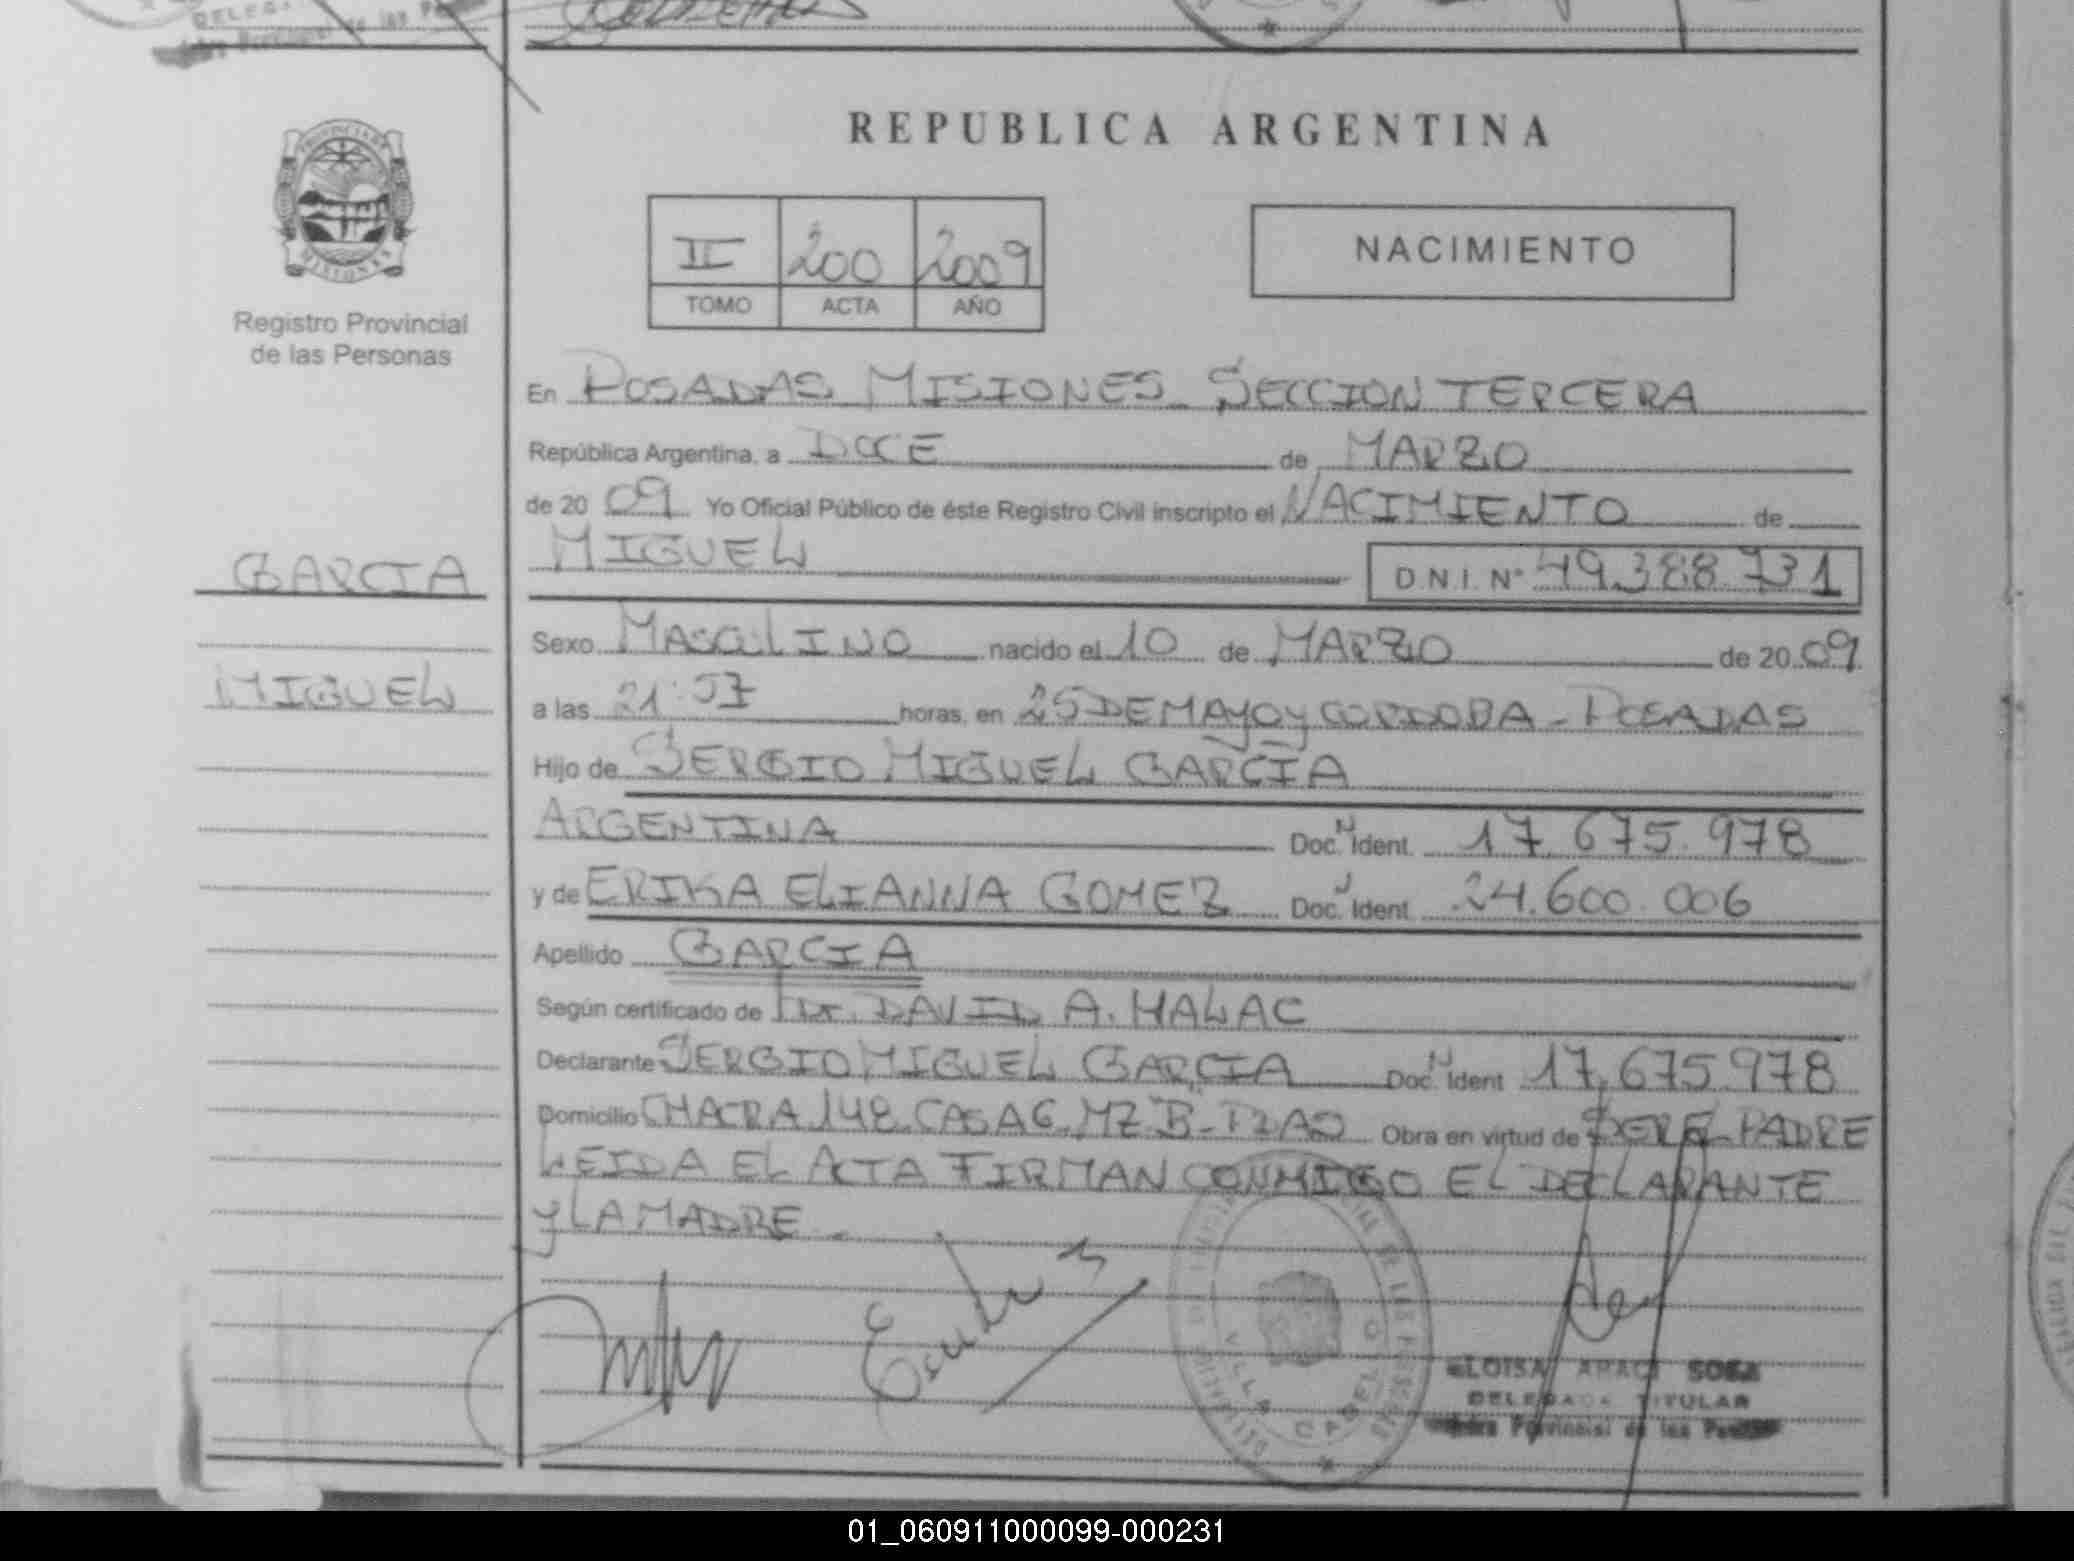 REPUBLICA ARGENTINA
II 200 2009
TOMO ACTA AÑO
NACIMIENTO
PROVINCIA DE
MISIONES
Registro Provincial
de las Personas
En POSADAS MISIONES SECCION TERCERA
República Argentina, a DOCE de MARZO
de 20 09 Yo Oficial Público de éste Registro Civil inscripto el NACIMIENTO de
GARCIA
MIGUEL
MIGUEL D.N.I. N° 49.388.731
Sexo MASCULINO nacido el 10 de MARZO de 20 09
a las 21:57 horas, en 25 DE MAYO y CORDOBA - POSADAS
Hijo de SERGIO MIGUEL GARCIA
ARGENTINA Doc. N Ident. 17.675.978
y de ERIKA ELIANNA GOMEZ Doc. N Ident. 24.600.006
Apellido GARCIA
Según certificado de Dr. DAVID A. HALAC
Declarante SERGIO MIGUEL GARCIA Doc. N Ident 17.675.978
Domicilio CHACRA 148 CASA 6 MZ B - PZAO Obra en virtud de SER EL PADRE
LEIDA EL ACTA FIRMAN CONMIGO EL DECLARANTE
y LA MADRE
VILLA CABELLO
ELOISA ARACI SOSA
DELEGADA TITULAR
Provincial de las
01_060911000099-000231